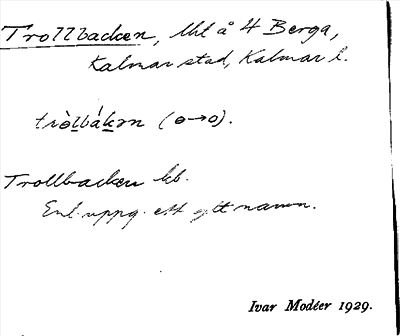 Trollbacken, lht å 4 Berga,
Kalmar stad, Kalmar l.
tròlbákən (ɵ→o).
Trollbacken kb.
Enl. uppg. ett nytt namn.
Ivar Modéer 1929.